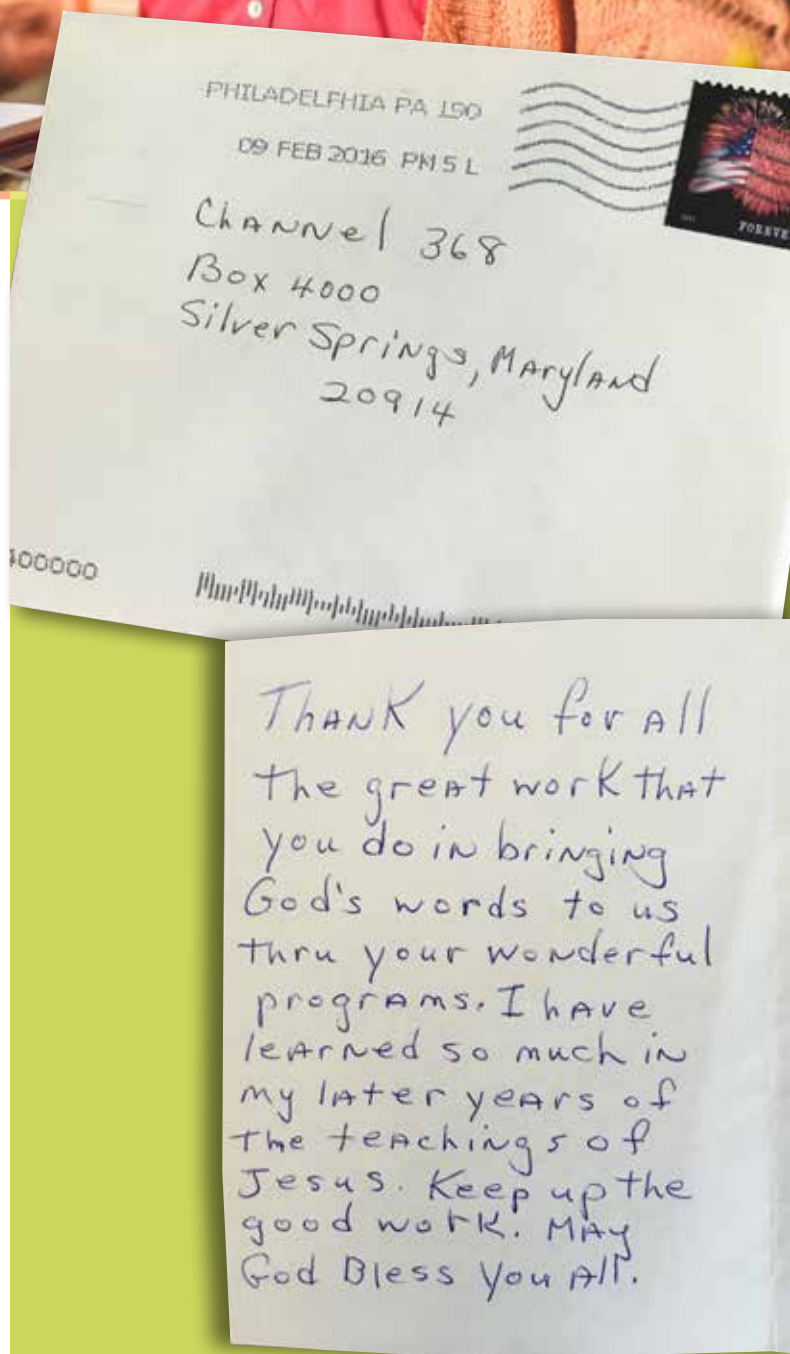 PHILADELPHIA PA 190
09 FEB 2016 PM 5 L
FOREVE
Channel 368
Box 4000
Silver Springs, Maryland
20914
400000
Thank you for all
the great work that
you do in bringing
God's words to us
thru your wonderful
programs. I have
learned so much in
my later years of
the teachings of
Jesus. Keep up the
good work. May
God Bless You All.